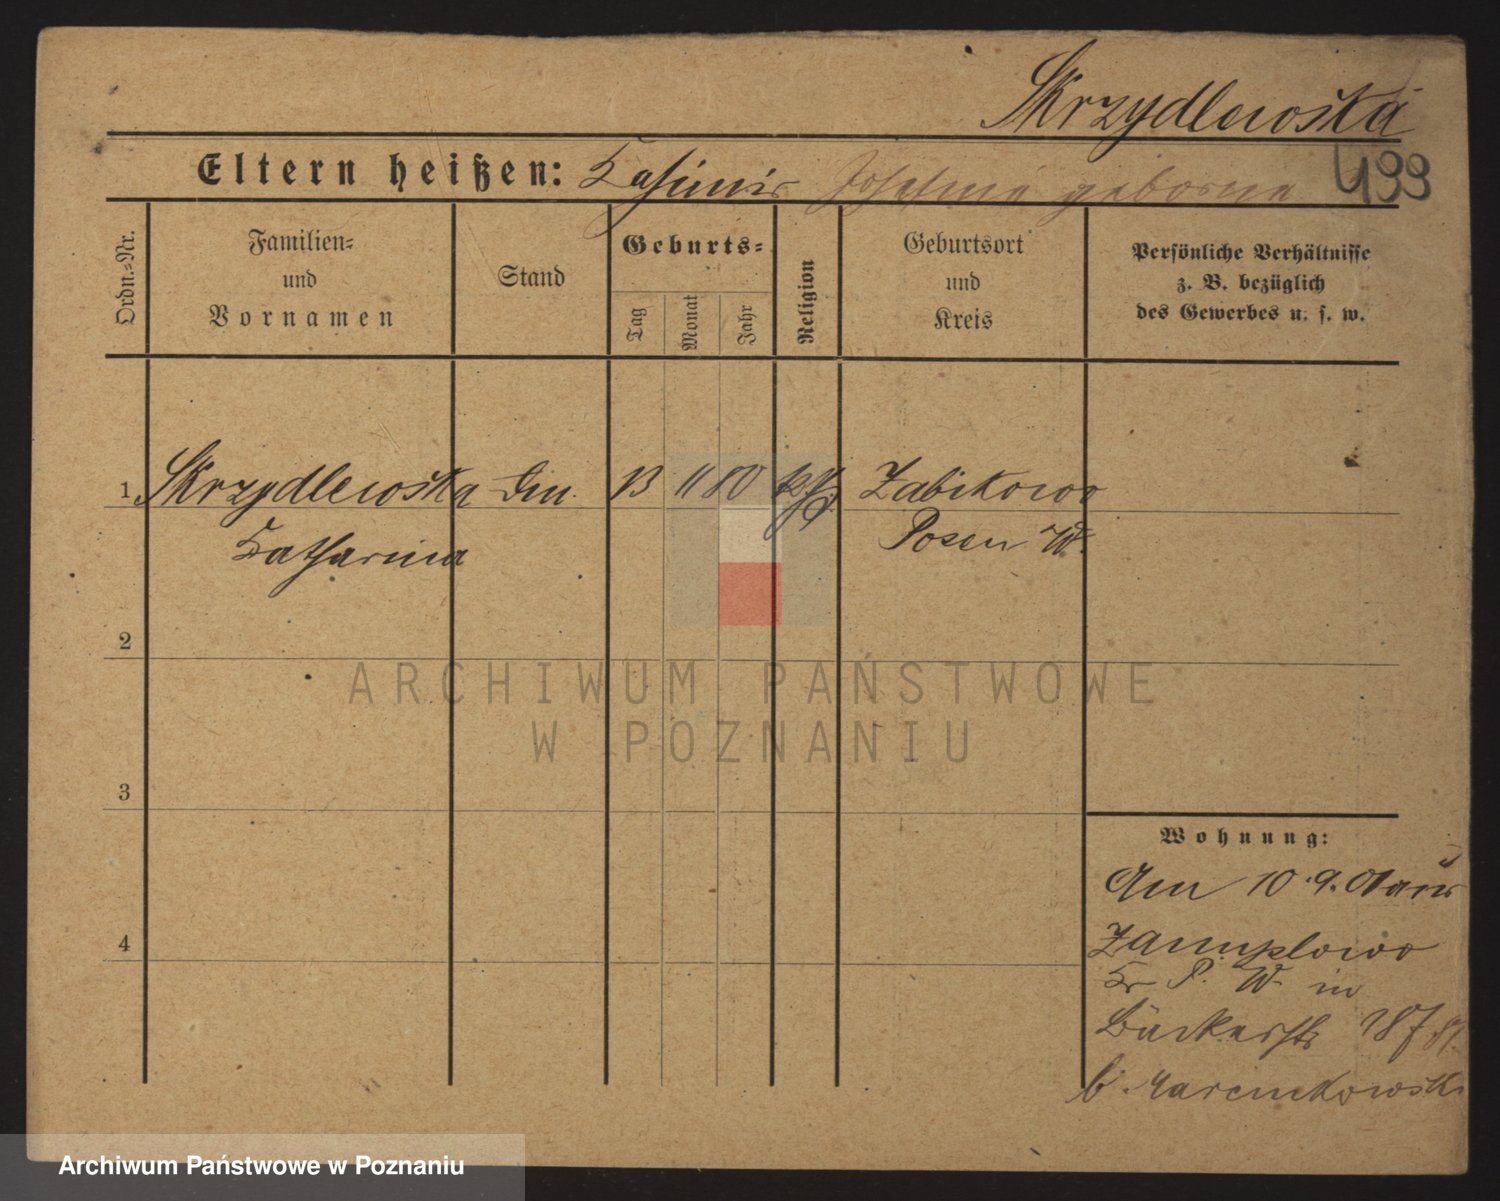 Skrzydlewska
Eltern heißen: Kasimir Josefine geborene
499
Ordn.-Nr.
Familien-
und
Vornamen
Stand
Geburts-
Tag Monat Jahr
Religion
Geburtsort
und
Kreis
Persönliche Verhältnisse
z. B. bezüglich
des Gewerbes u. s. w.
1 Skrzydlewska Din. 13 11 80 kth Zabikowo
Katharina Posen W.
2
3
4
Wohnung:
Am 10.9.01 aus
Kr P. W. in
Bäckerstr 18
b. Marcinkowski
ARCHIWUM PAŃSTWOWE
W POZNANIU
Archiwum Państwowe w Poznaniu